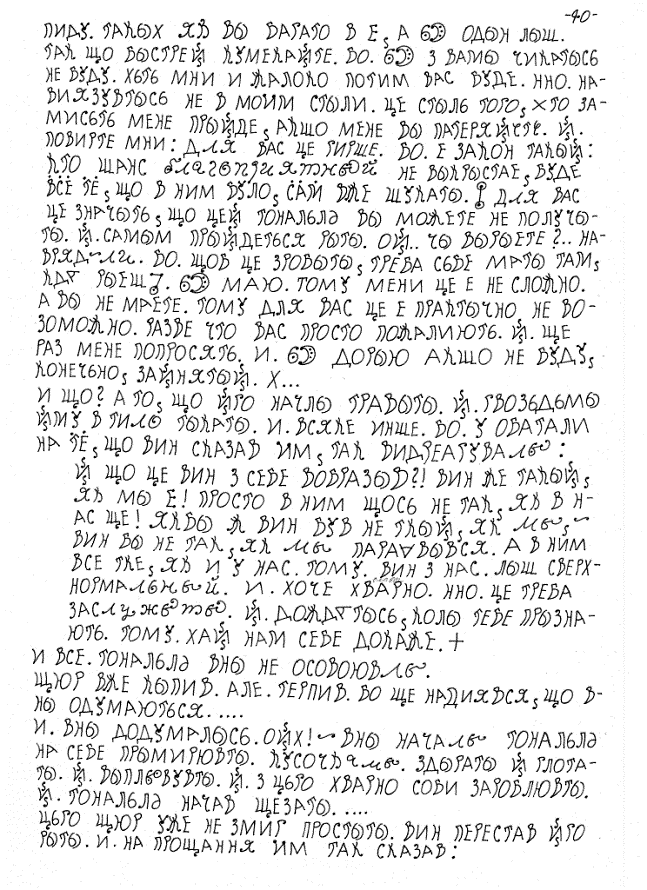 -40-
ПИДУ. ТАКЫХ ЯК ВЫ БАГАТО Є, А Я ОДЫН ЛЫШ.
ТАК ЩО БЫСТРЕЙ КУМЕКАЙТЕ. БО. Я З ВАМЫ ЧИКАТЫСЬ
НЕ БУДУ. ХОТЬ МНИ И ЖАЛОКО ПОТИМ ВАС БУДЕ. ННО. НА-
ВИЯЗУВТЫСЬ НЕ В МОИМ СТЫЛИ. ЦЕ СТЫЛЬ ТОГО, ХТО ЗА-
МИСЬТЬ МЕНЕ ПРЫЙДЕ, АКЩО МЕНЕ ВЫ ПАТЕРЯЙИТЕ. Й.
ПОВИРТЕ МНИ: ДЛЯ ВАС ЦЕ ГИРШЕ. БО. Е ЗАКОН ТАКЫЙ:
КТО ШАНС благоприятный НЕ ВЫКРЫСТАЕ, БУДЕ
ВСЁ ТЕ, ЩО В НИМ БУЛО, САМ ВЖЕ ШУКАТЫ. ДЛЯ ВАС
ЦЕ ЗНАЧЫТЬ, ЩО ЦЕЙ ТОНАЛЬЛЬ ВЫ МОЖЕТЕ НЕ ПОЛУЧЫ-
ТЫ. Й. САМЫМ ПРЫЙДЕТЬСЯ РЫТЫ. ОЙ.. ЧЫ ВЫРЫЕТЕ?.. НА-
ВРЯД-ли. БО. ЩОБ ЦЕ ЗРОБЫТЫ, ТРЕБА СЬВЕ МАТЫ ТАМ,
ЖДТ РЫЕШ. Я МАЮ. ТОМУ МЕНИ ЦЕ Е НЕ СЛОЖНО.
А ВЫ НЕ МАЕТЕ. ТОМУ ДЛЯ ВАС ЦЕ Е ПРАКТЫЧНО НЕ ВО-
ЗОМОЖНО. РАЗВЕ ЧТО ВАС ПРОСТО ПОЖАЛИЮТЬ. Й. ЩЕ
РАЗ МЕНЕ ПОПРОСЯТЬ. И. Я ДОРЫЮ АКЩО НЕ БУДУ,
КОНЕЧЬНО, ЗАЙНЯТЫЙ. Х...
И ЩО? А ТО, ЩО ЙГО НАЧЛЫ ТРАВЫТЫ. Й. ГВОЗЬДЬМЫ
ЙМУ В ТИЛО ТЫКАТЫ. И. ВСЯКЕ ИНШЕ. БО. У ОВАТАЛИ
НА ТЕ, ЩО ВИН СКАЗАВ ИМ, ТАК ВИДРЕАГУВАлы:
Й ЩО ЦЕ ВИН З СЕБЕ ВОВРАЗЫВ?! ВИН ЖЕ ТАКЫЙ,
ЯК МЫ Е! ПРОСТО В НИМ ЩОСЬ НЕ ТАК, ЯК В Н-
АС ЩЕ! ЯКБЫ Ж ВИН БУВ НЕ ТКЫЙ, ЯК мы,~
ВИН БЫ НЕ ТАК, ЯК мы ПАРАВЫВСЯ. А В НИМ
ВСЕ ТКЕ, ЯК И У НАС. ТОМУ. ВИН З НАС. ЛЫШ СВЕРХ-
НОРМАЛЬный. И. ХОЧЕ ХВАРНО. ННО. ЦЕ ТРЕБА
ЗАСлужыты. Й. ДОЖДТЫСЬ, КОЛЫ ТЕБЕ ПРЫЗНА-
ЮТЬ. ТОМУ. ХАЙ НАМ СЕБЕ ДОКАЖЕ.+
И ВСЕ. ТОНАЛЬЛЬ ВНЫ НЕ ОСВОЮВлы.
ЩЮР ВЖЕ КЫПИВ. АЛЕ. ТЕРПИВ. БО ЩЕ НАДИЯВСЯ, ЩО В-
НЫ ОДУМАЮТЬСЯ.....
И. ВНЫ ДОДУМАЛЫСЬ. ОЙХ!~ ВНЫ НАЧАлы ТОНАЛЬЛЬ
НА СЕБЕ ПРЫМИРЮВТЫ. КУСОЧКАмы. ЗДЫРАТЫ Й ГЛОТА-
ТЫ. Й. ВЫПЛЬОВУВТЫ. Й. З ЦЬГО ХВАРНО СОБИ ЗАРОБЛЮВТЫ.
Й. ТОНАЛЬЛЬ НАЧАВ ЩЕЗАТЫ.....
ЦЬГО ЩЮР УЖЕ НЕ ЗМИГ ПРОСТЫТЫ. ВИН ПЕРЕСТАВ ЙГО
РЫТЫ. И. НА ПРОЩАННЯ ИМ ТАК СКАЗАВ: